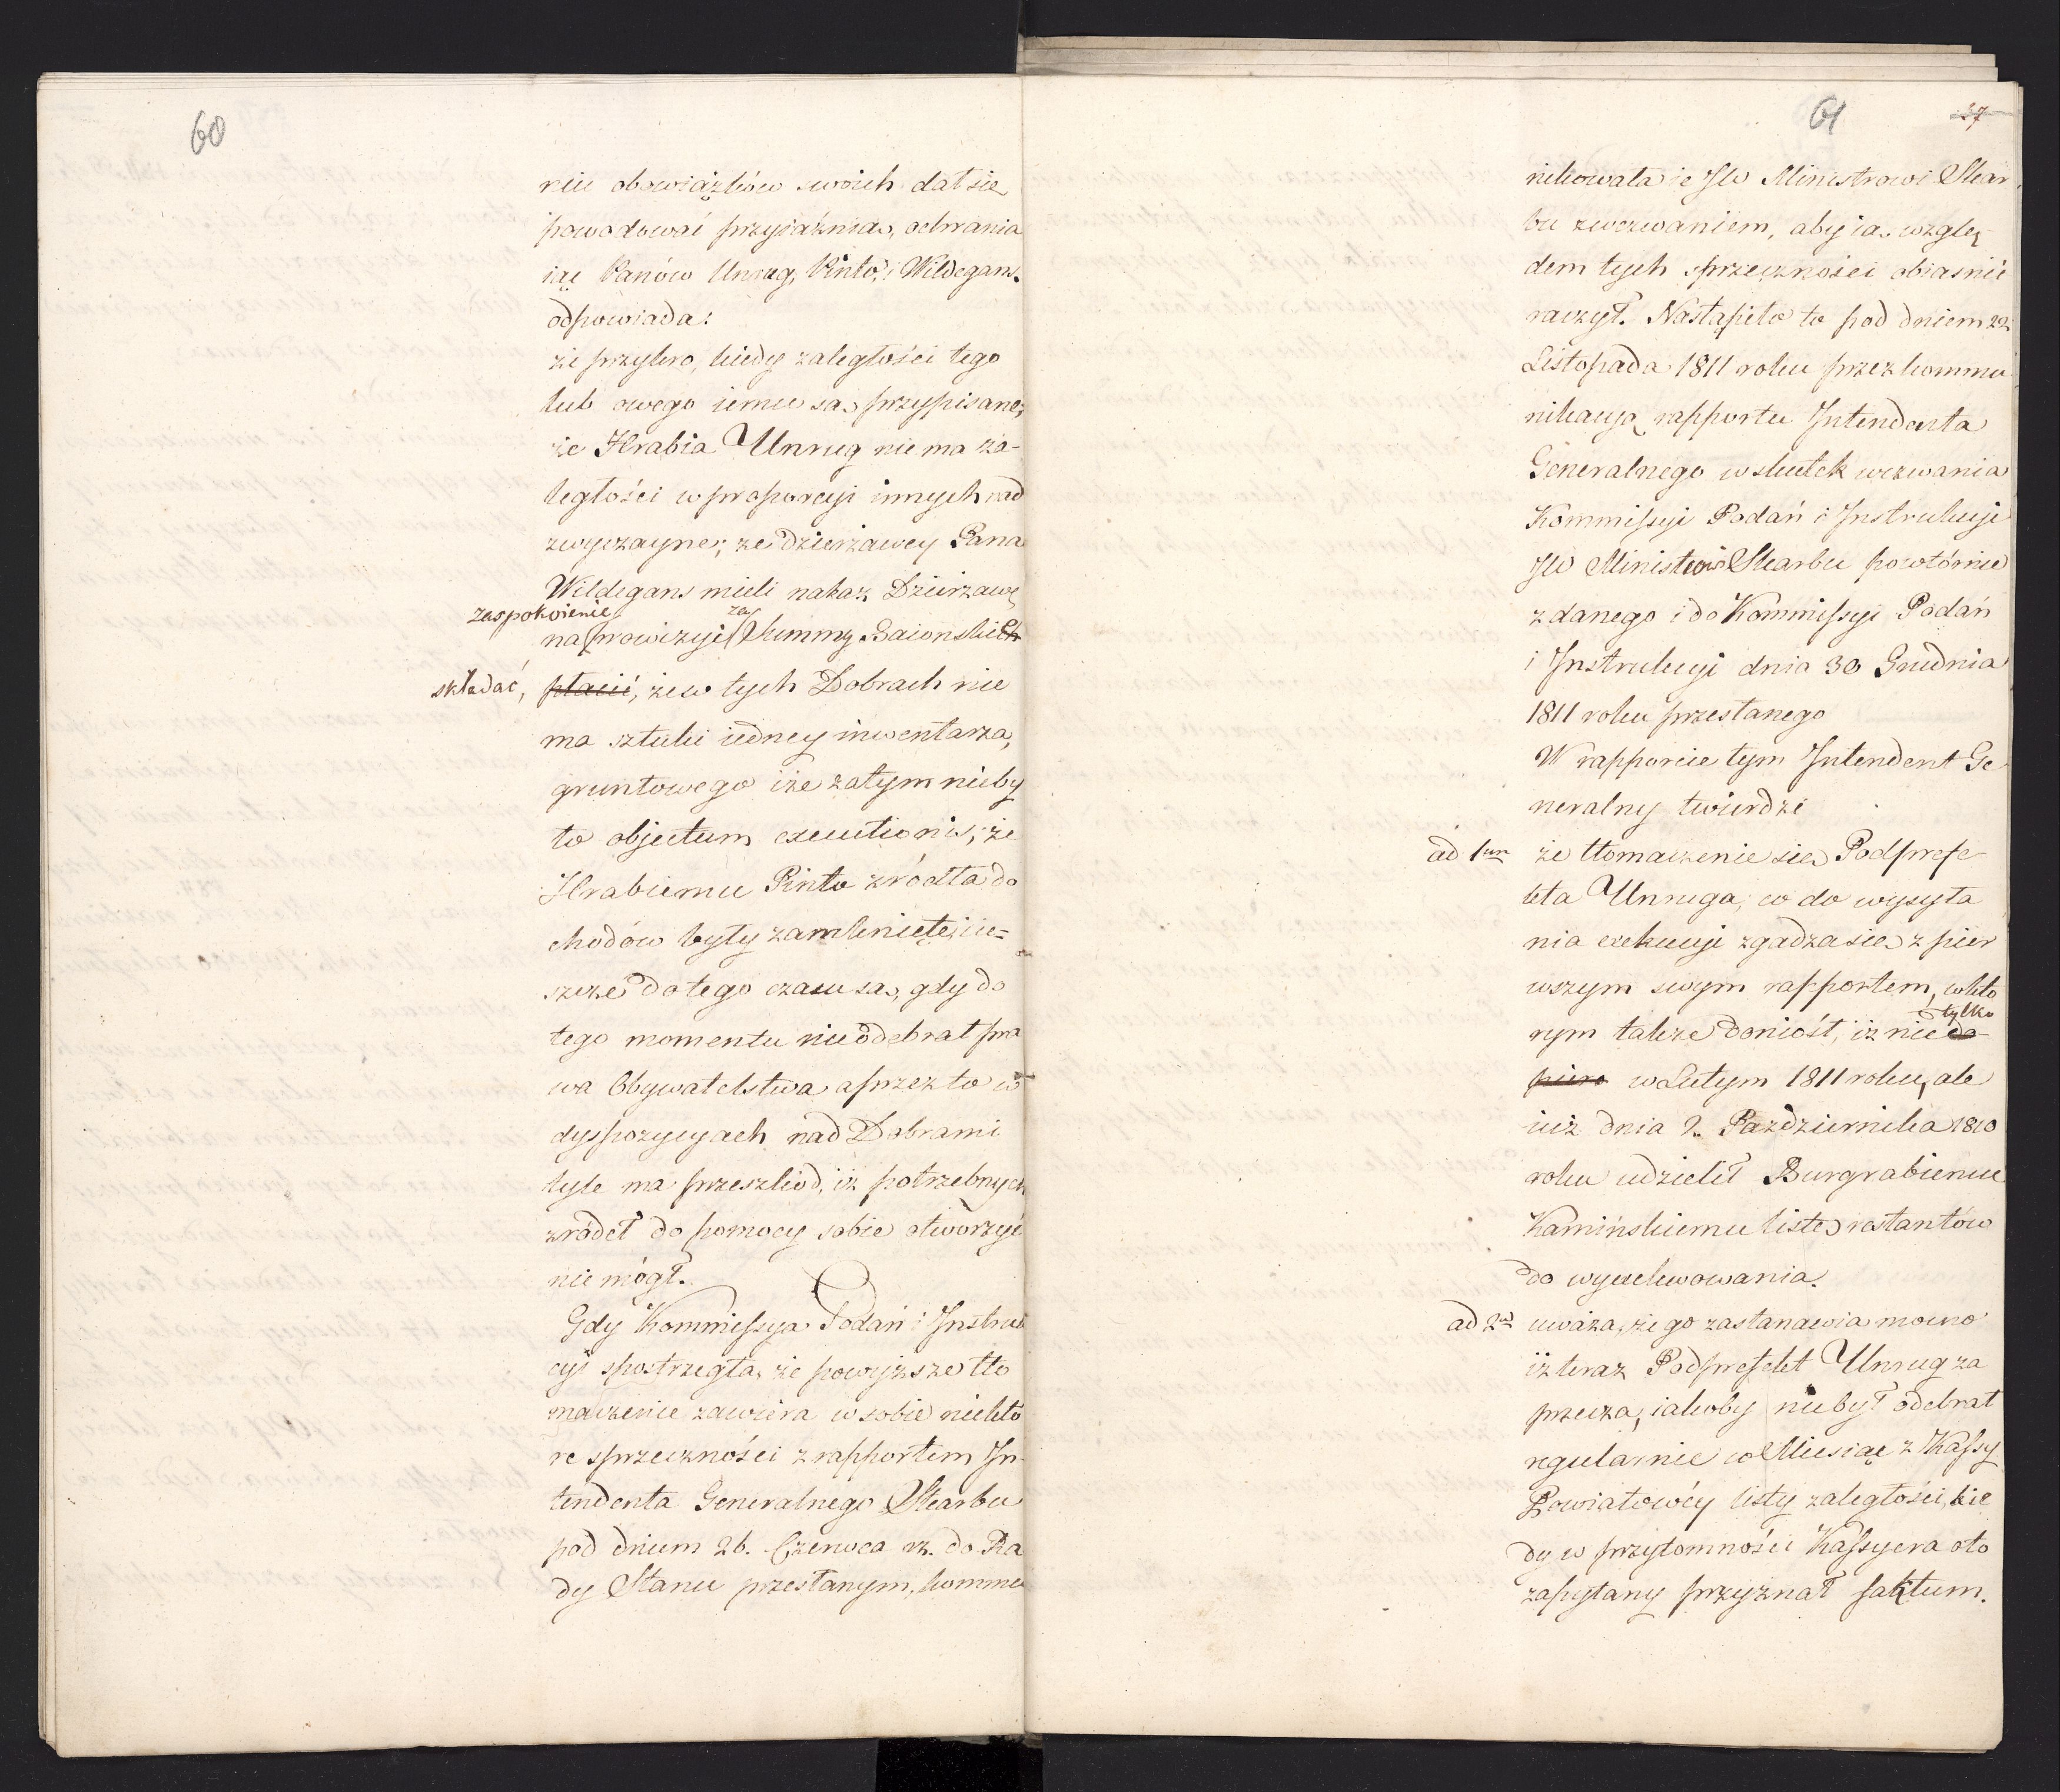 60
niu obowiązków swoich dał się
powodować przyiaźnią, ochrania
iąc Panów Unrug, Pinto, i Wildegans.
odpowiada:
że przykro, kiedy zaległości tego
lub owego iemu są przypisane;
że Hrabia Unrug nie ma za-
ległości w proporcyi innych nad
zwyczayne; że dzierżawcy Pana
Wildegans mieli nakaz Dzierżawę
zaspokoienie za
na prowizyi Summy Baionskich
składać, płacić, że w tych Dobrach nie
ma sztuki iedney inwentarza,
gruntowego i że zatym nieby
ło objectum executionis; że
Hrabiemu Pinto źródła do
chodów były zamknięte, i ie=
szcze do tego czasu są, gdy do
tego momentu nie odebrał pra
wa Obywatelstwa a przez to w
dyspozycyach nad Dobrami
tyle ma przeszkod, iż potrzebnych
źródeł do pomocy sobie otworzyć
nie mógł.
Gdy Kommissya Podań i Instruk
cyi spostrzegła, że powyższe tło
maczenie zawiera w sobie niektó
re sprzeczności z rapportem In-
tendenta Generalnego Skarbu
pod dniem 26. Czerwca rz. do Ra
dy Stanu przesłanym, kommu
61
37
nikowała ie JW Ministrowi Skar
bu z wezwaniem, aby ią wzglę
dem tych sprzeczności obiaśnić
raczył. Nastąpiło to pod dniem 22
Listopada 1811 roku przez kommu
nikacyą rapportu Intendenta
Generalnego w skutek wezwania
Kommissyi Podań i Instrukcyi
JW Ministrowi Skarbu powtórnie
zdanego i do Kommissyi Podań
i Instrukcyi dnia 30 Grudnia
1811 roku przesłanego
W rapporcie tym Intendent Ge
neralny twierdzi
ad 1um że tłomaczenie się Podprefe
kta Unruga, co do wysyła
nia exekucyi zgadza się z pier
wszym swym rapportem, w któ
tylko
rym także doniósł, iż nie do-
piero w Lutym 1811 roku, ale
iuż dnia 2. Października 1810
roku udzielił Burgrabiemu
Kamińskiemu listę restantów
do wyexekwowania.
ad 2um uważa, że go zastanawia mocno
iż teraz Podprefekt Unrug za
przecza, iakoby nie był odebrał
regularnie co Miesiąc z Kassy
Powiatowéy listy zaległości, kie
dy w przytomności Kassyera o to
zapytany przyznał faktum.